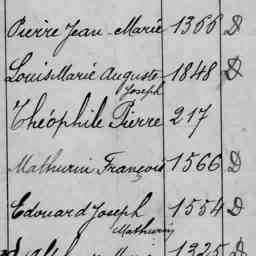 Pierre Jean-Marie 1366 D
Louis Marie Auguste 1848 D
Joseph
Théophile Pierre 217
Mathurin François 1566 D
Edouard Joseph 1554 D
Mathurin
1325 D